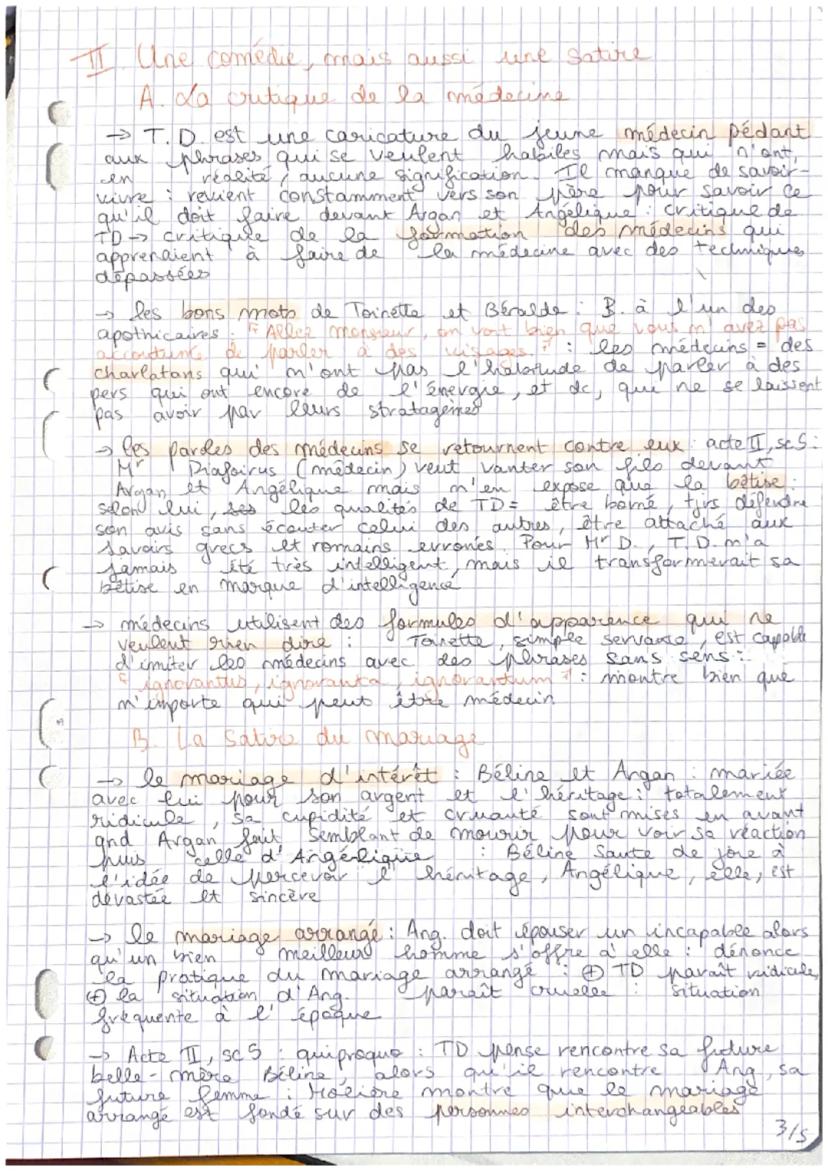 II. Une comédie, mais aussi une satire
A. La critique de la médecine
→ T.D est une caricature du jeune médecin pédant
aux phrases qui se veulent habiles mais qui n'ont,
en réalité, aucune signification. Il manque de savoir-
vivre : revient constamment vers son père pour savoir ce
qu'il doit faire devant Argan et Angélique : critique de
TD → critique de la formation des médecins qui
apprenaient à faire de la médecine avec des techniques
dépassées
→ les bons mots de Toinette et Béralde : B. à l'un des
apothicaires : "Allez monsieur, on voit bien que vous n'avez pas
accoutumé de parler à des visages" : les médecins = des
charlatans qui n'ont pas l'habitude de parler à des
pers qui ont encore de l'énergie, et dc, qui ne se laissent
pas avoir par leurs stratagèmes
→ les paroles des médecins se retournent contre eux : acte II, sc 5 :
Mr Diafoirus (médecin) veut vanter son fils devant
Argan et Angélique mais n'en expose que la bêtise :
selon lui, ses les qualités de TD = être borné, tjrs défendre
son avis sans écouter celui des autres, être attaché aux
savoirs grecs et romains erronés. Pour Mr D., T.D. n'a
jamais été très intelligent, mais il transformerait sa
bêtise en marque d'intelligence
→ médecins utilisent des formules d'apparence qui ne
veulent rien dire : Toinette, simple servante, est capable
d'imiter les médecins avec des phrases sans sens :
"ignorantus, ignoranta, ignorantum" : montre bien que
n'importe qui peut être médecin
B. La satire du mariage
→ le mariage d'intérêt : Béline et Argan : mariée
avec lui pour son argent et l'héritage : totalement
ridicule, sa cupidité et cruauté sont mises en avant
qnd Argan fait semblant de mourir pour voir sa réaction
puis celle d'Angélique : Béline saute de joie à
l'idée de percevoir l'héritage, Angélique, elle, est
dévastée et sincère
→ le mariage arrangé : Ang. doit épouser un incapable alors
qu'un bien meilleur homme s'offre à elle : dénonce
la pratique du mariage arrangé : ⊕ TD paraît ridicule,
⊕ la situation d'Ang. paraît cruelle : situation
fréquente à l'époque
→ Acte II, sc 5 : quiproquo : TD pense rencontre sa future
belle-mère Béline, alors qu'il rencontre Ang, sa
future femme : Molière montre que le mariage
arrangé est fondé sur des personnes interchangeables
3/5